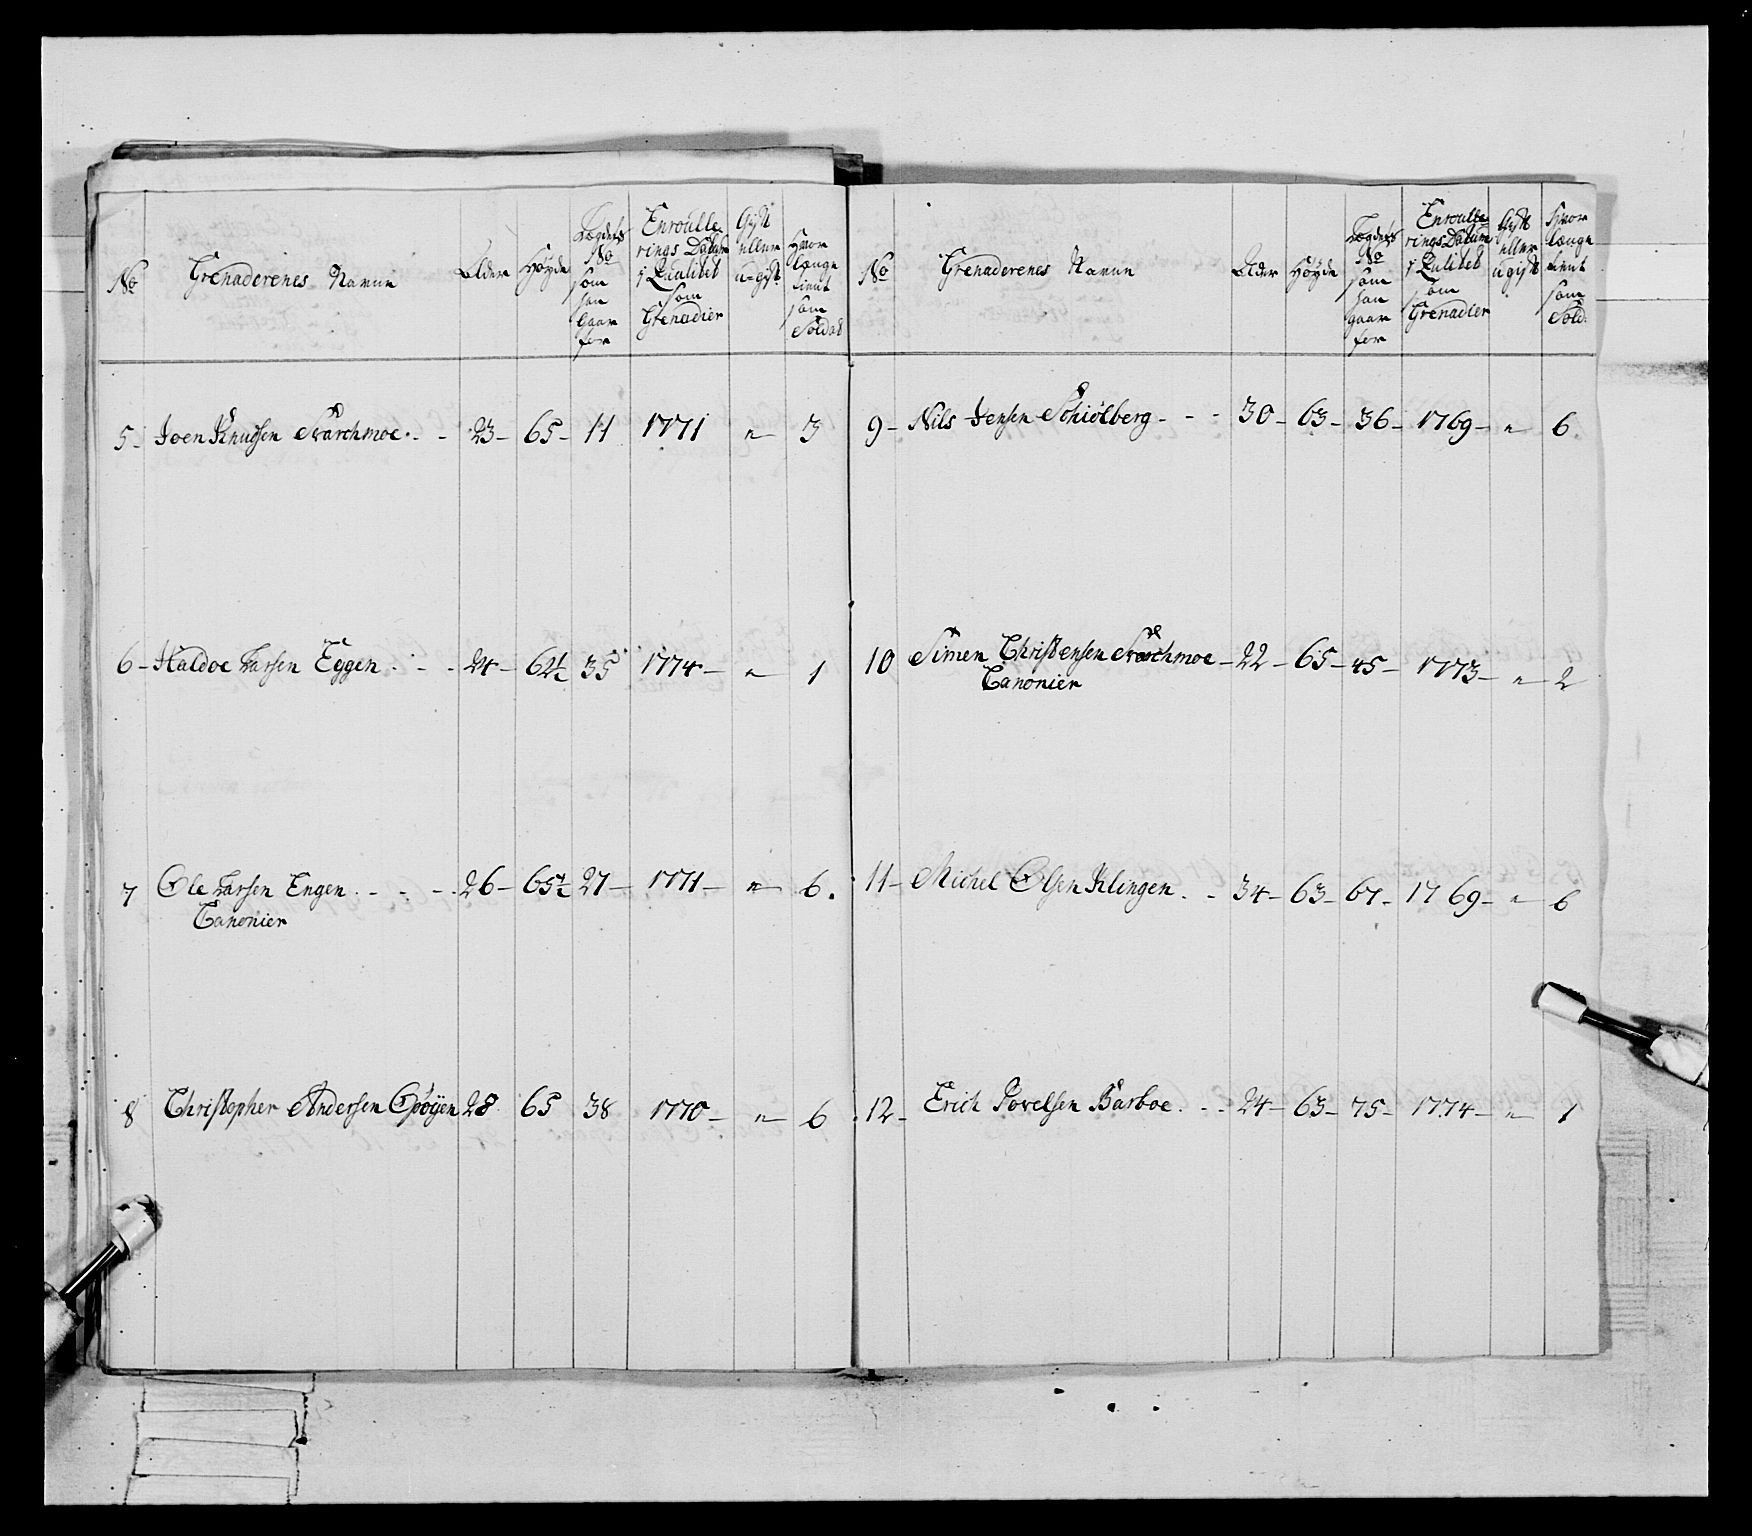 No
Grenaderenes Navne
Alder
Høyde
Lægdets
No
som
han
Gaar
for
Enroulle-
rings Datum
i Qualitet
som
Grenadier
Gift
eller
u-gift
Hvor
længe
tient
som
Soldat
5 - Joen Knudsen Svarchmoe - - 23 - 65 - 11 1771 n- 3
6 - Haldoe Larsen Eggen - - 24 - 64½ 35 1774 - n- 1
7 Ole Larsen Engen - - - 26 - 65½ 27 - 1771 - n- 6.
Canonier
8 Christopher Andersen 28 65 38 1770 - n- 6
No
Grenaderenes Navne
Alder
Høyde
Lægdets
No
som
han
gaar
for
Enroulle-
rings Datum
i Qulitet
som
Grenadier
Gift
eller
ugift
Hvor
længe
tient
som
Sold:
9 - Nils Jensen Schiølberg - - - 30 - 63 - 36 - 1769 - n- 6
10 Simen Christensen Svarchmoe - 22 - 65 - 45 - 1773 - n- 2
Canonier
11 - Michel Olsen Klingen - - 34 - 63 - 67 - 1769 - n- 6
12 - Erich Povelsen Barboe - - - 24 - 63 - 75 - 1774 - n- 1